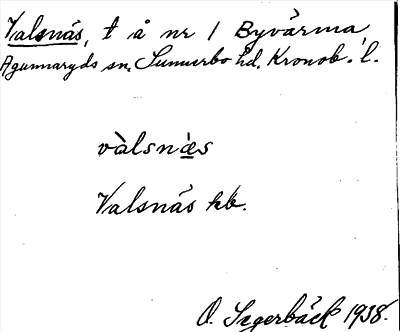 Valsnäs, t å nr 1 Byvärma,
Agunnaryds sn, Sunnerbo hd, Kronob. l.
vàlsnæ̀s
Valsnäs hk.
O. Segerbäck 1938.